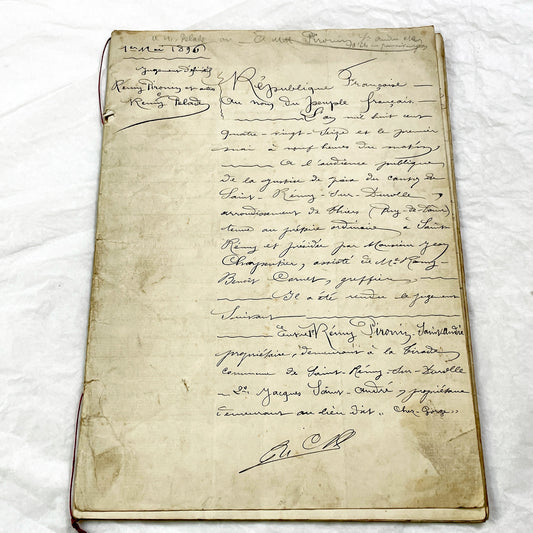 1er Mai 1896
Jugement
Rémy Pironin et
Rémy Pelade
République Française
Au nom du peuple français
L'an mil huit cent
quatre-vingt-seize et le premier
mai à neuf heures du matin,
A l'audience publique
de la justice de paix du canton de
Saint-Rémy-sur-Durolle
arrondissement de Thiers (Puy-de-Dôme)
tenue au prétoire ordinaire à Saint
Rémy et présidée par Monsieur Jean
Charpentier, assisté de Me Rémy
Benoit Cornet, greffier,
Il a été rendu le jugement
suivant
Entre 1° Rémy Pironin-Saint-André
propriétaire, demeurant à
commune de Saint-Rémy-sur-Durolle
2° Jacques Saint-André, propriétaire
demeurant au lieu dit